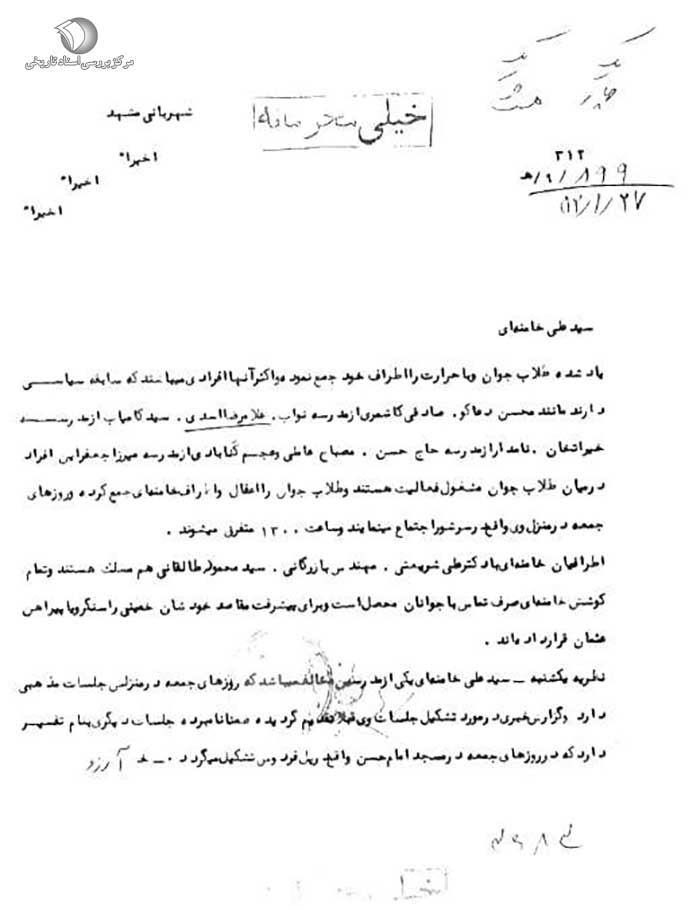 مرکز بررسی اسناد تاریخی
شهربانی مشهد
خیلی محرمانه
اخیرا"
اخیرا"
اخیرا"
۳۱۲
۱۲/۱/۲۷
سید علی خامنه‌ای
یاد شده طلاب جوان وبا حرارت را اطراف خود جمع نموده واکثر آنها افرادی میباشند که سابقه سیاسی
دارند مانند محسن دعاگو . صادقی کاشمری از مدرسه نواب . غلامرضا اسدی . سید کامیاب از مدرسه
خیراتخان . نامدار از مدرسه حاج حسن . مصباح عاملی وعجم گنابادی از مدرسه میرزا جعفر این افراد
درمیان طلاب جوان مشغول فعالیت هستند وطلاب جوان را اغفال واطراف خامنه‌ای جمع کرده وروزهای
جمعه درمنزل وی واقع درسرشور اجتماع مینمایند وساعت ۱۳۰۰ متفرق میشوند .
اطرافیان خامنه‌ای با دکتر علی شریعتی . مهندس بازرگانی . سید محمود طالقانی هم مسلک هستند وتمام
کوشش خامنه‌ای صرف تماس با جوانان محصل است وبرای پیشرفت مقاصد خودشان خمینی را سنگر ویا پیراهن
عثمان قرار داده‌اند .
نظریه یکشنبه ـ سید علی خامنه‌ای یکی از مدرسین مخالف میباشد که روزهای جمعه درمنزلش جلسات مذهبی
دارد وگزارش خبری درمورد تشکیل جلسات وی قبلا تقدیم گردیده ضمنا نامبرده جلسات دیگری بنام تفسیر
دارد که درروزهای جمعه درمسجد امام حسن واقع درپل فردوس تشکیل میگردد ۰ ـ خ آرزو
خیلی